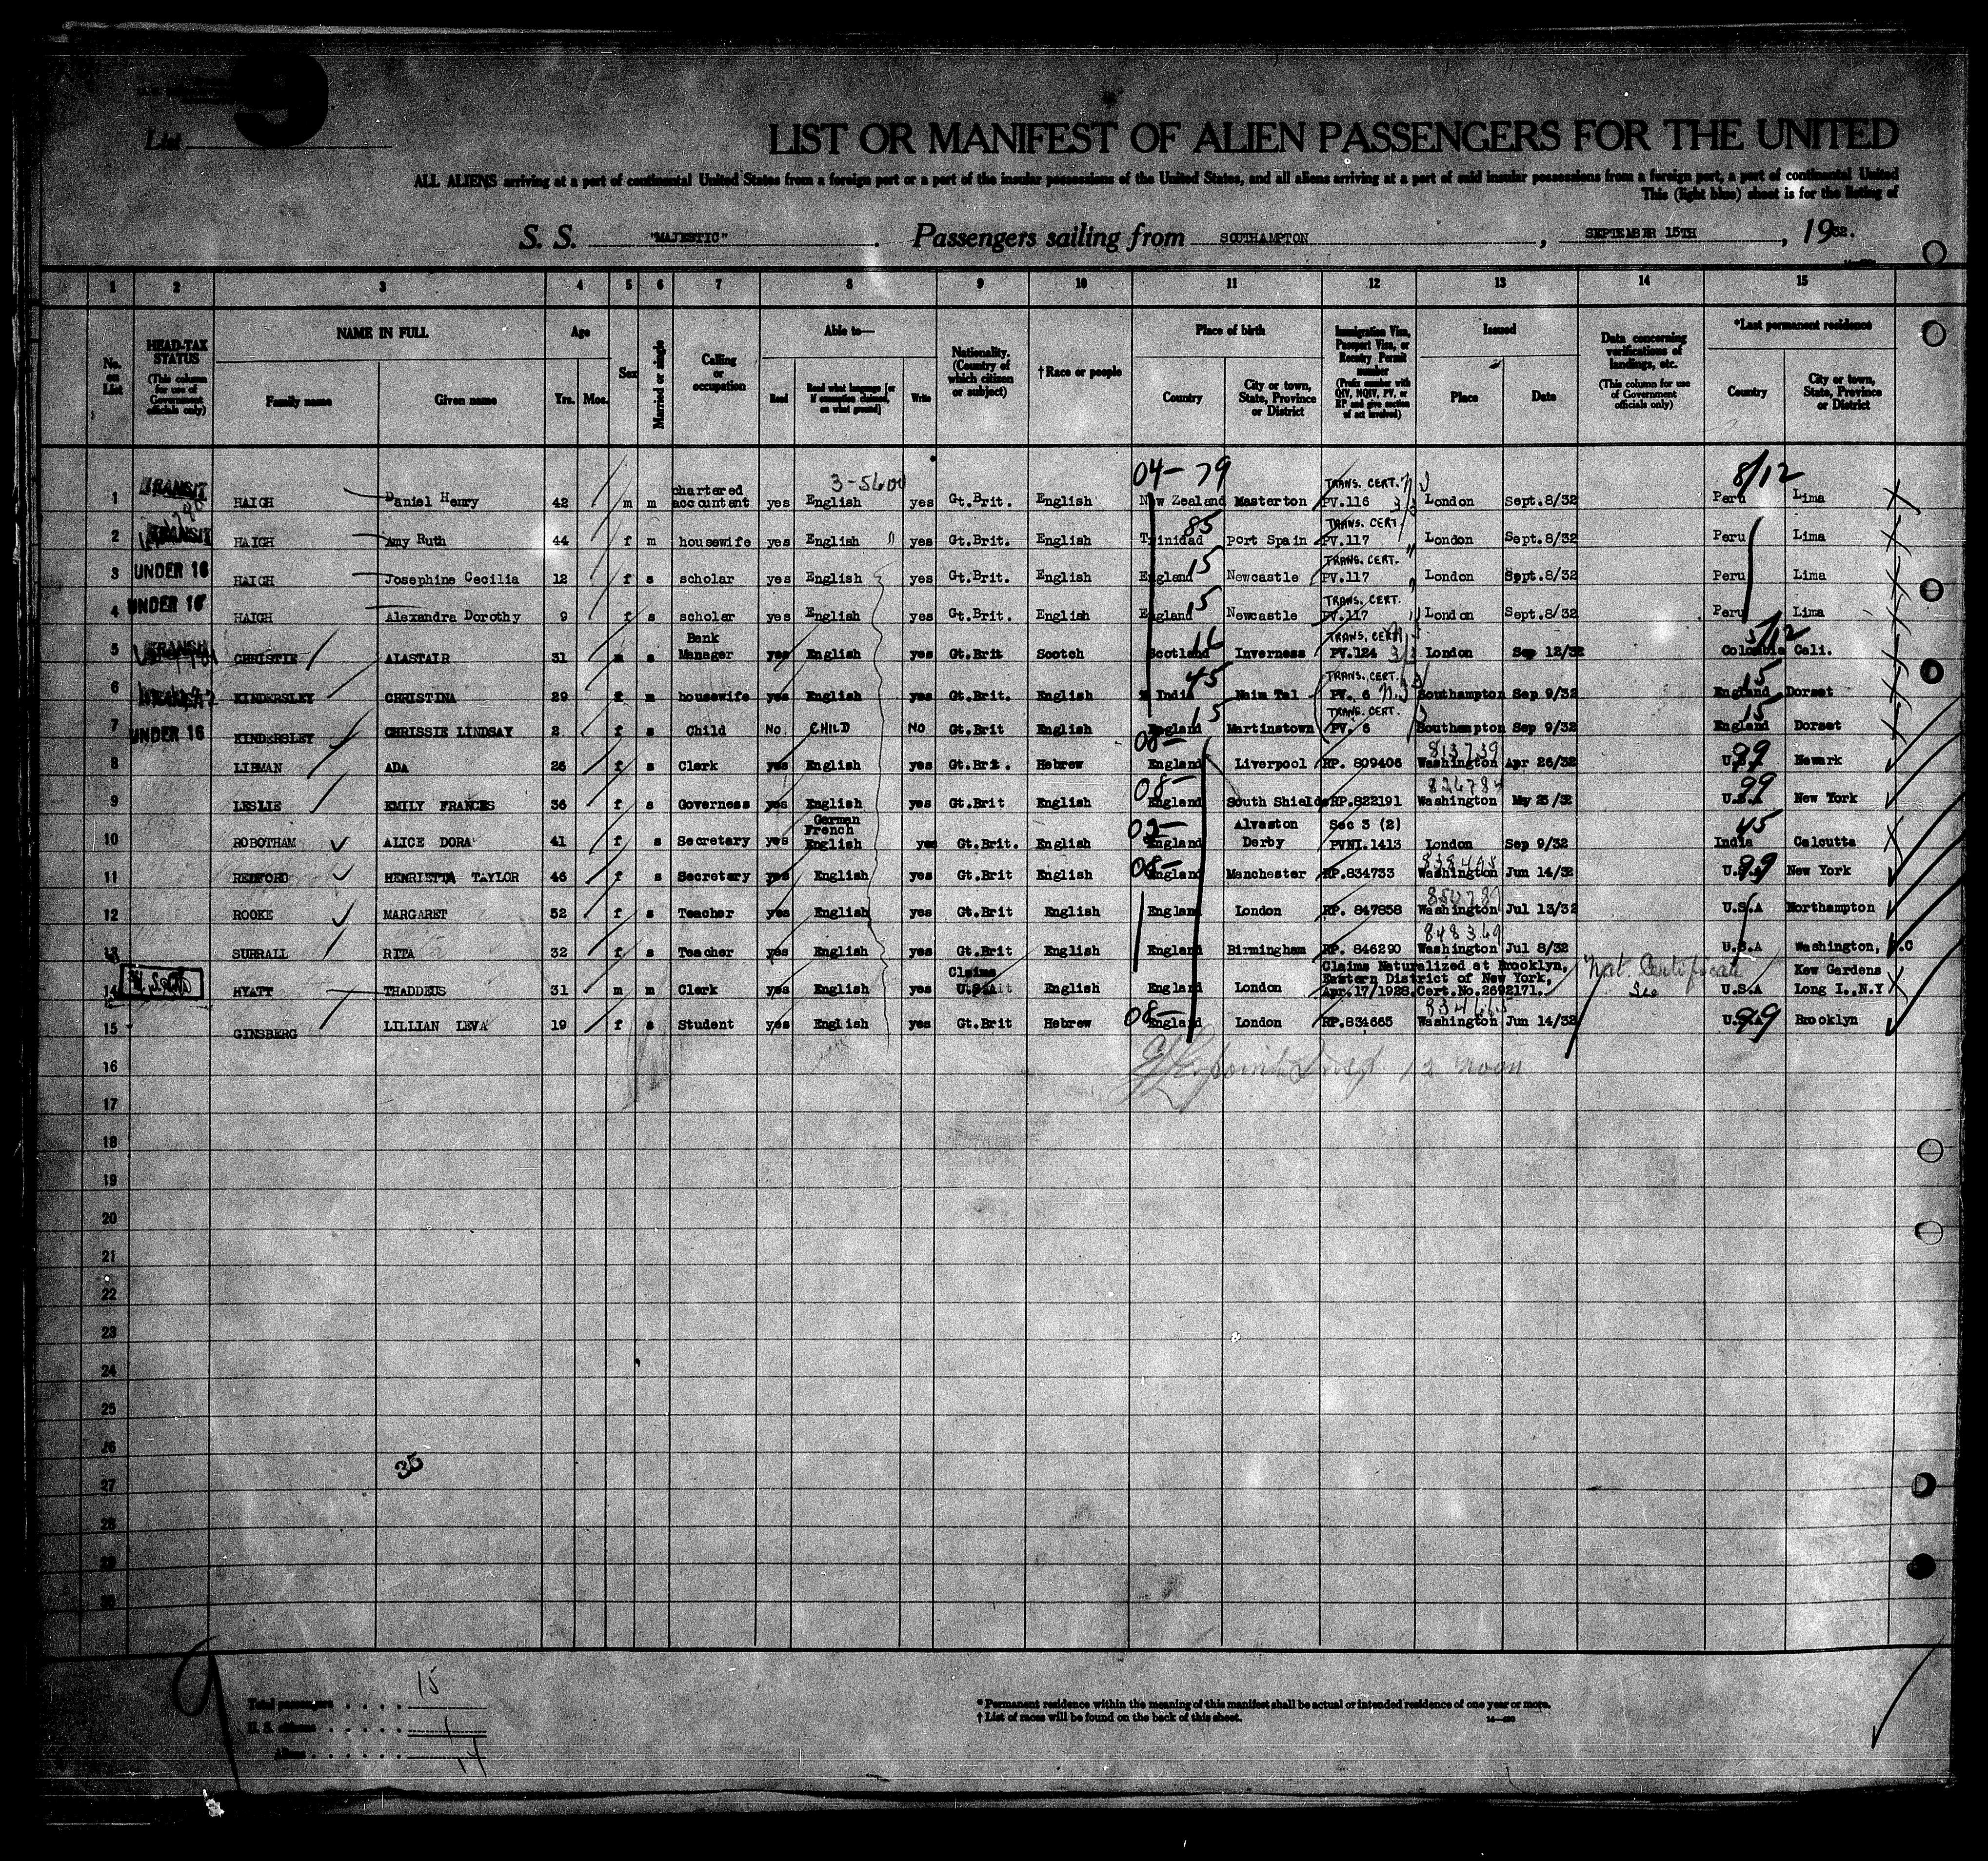 9
List
LIST OR MANIFEST OF ALIEN PASSENGERS FOR THE UNITED
ALL ALIENS arriving at a port of continental United States from a foreign port or a port of the insular possessions of the United States, and all aliens arriving at a port of said insular possessions from a foreign port, a port of continental United
This (light blue) sheet is for the listing of
S. S. "MAJESTIC". Passengers sailing from SOUTHAMPTON, SEPTEMBER 15TH, 1932.
1 2 3 4 5 6 7 8 9 10 11 12 13 14 15
No. on List
HEAD-TAX STATUS (This column for use of Government officials only)
NAME IN FULL
Family name Given name
Age Yrs. Mos.
Sex
Married or single
Calling or occupation
Able to—
Read Read what language [or if exemption claimed, on what ground] Write
Nationality. (Country of which citizen or subject)
† Race or people
Place of birth
Country City or town, State, Province or District
Immigration Visa, Passport Visa, or Reentry Permit number (Prefix number with QIV, NQIV, PV, or RP and give section of act involved)
Issued
Place Date
Data concerning verifications of landings, etc. (This column for use of Government officials only)
*Last permanent residence
Country City or town, State, Province or District
3-5600 04-79 8/12
1 TRANSIT HAIGH Daniel Henry 42 m m chartered accountant yes English yes Gt.Brit. English New Zealand Masterton TRANS. CERT. PV.116 London Sept.8/32 Peru Lima
2 TRANSIT HAIGH Amy Ruth 44 f m housewife yes English yes Gt.Brit. English Trinidad 85 Port Spain TRANS. CERT. PV.117 London Sept.8/32 Peru Lima
3 UNDER 16 HAIGH Josephine Cecilia 12 f s scholar yes English yes Gt.Brit. English England 15 Newcastle TRANS. CERT. PV.117 London Sept.8/32 Peru Lima
4 UNDER 16 HAIGH Alexandra Dorothy 9 f s scholar yes English yes Gt.Brit. English England 15 Newcastle TRANS. CERT. PV.117 London Sept.8/32 Peru Lima
5 TRANSIT CHRISTIE ALASTAIR 31 m s Bank Manager yes English yes Gt.Brit Scotch Scotland 16 Inverness TRANS. CERT. PV.124 London Sep 12/32 Colombia Cali.
6 KINDERSLEY CHRISTINA 29 f m housewife yes English yes Gt.Brit. English India 45 Naim Tal TRANS. CERT. PV. 6 Southampton Sep 9/32 England 15 Dorset
7 UNDER 16 KINDERSLEY CHRISSIE LINDSAY 2 f s Child No CHILD No Gt.Brit English England 15 Martinstown TRANS. CERT. PV. 6 Southampton Sep 9/32 England 15 Dorset
8 LIBMAN ADA 26 f s Clerk yes English yes Gt.Bri. Hebrew 08- England Liverpool RP. 809406 813739 Washington Apr 26/32 U.S.A 99 Newark
9 LESLIE EMILY FRANCES 36 f s Governess yes English yes Gt.Brit English 08- England South Shields RP.822191 Washington My 25/32 U.S.A 99 New York
10 ROBOTHAM ALICE DORA 41 f s Secretary yes German French English yes Gt.Brit. English England Alvaston Derby Sec 3 (2) PVNI.1413 London Sep 9/32 India 45 Calcutta
11 REDFORD HENRIETTA TAYLOR 46 f s Secretary yes English yes Gt.Brit English 08- England Manchester RP.834733 Washington Jun 14/32 U.S.A 99 New York
12 ROOKE MARGARET 52 f s Teacher yes English yes Gt.Brit English England London RP. 847858 Washington Jul 13/32 U.S.A Northampton
13 SURRALL RITA 32 f s Teacher yes English yes Gt.Brit English England Birmingham RP. 846290 848369 Washington Jul 8/32 U.S.A Washington, D.C
14 HYATT THADDEUS 31 m m Clerk yes English yes Claims U.S.A English England London Claims Naturalized at Brooklyn, Eastern District of New York, Apr.17/1928.Cert.No.2692171. Nat. Certificate U.S.A Kew Gardens Long I.,N.Y
15 GINSBERG LILLIAN LEVA 19 f s Student yes English yes Gt.Brit Hebrew 08- England London RP.834665 Washington Jun 14/32 U.S.A 99 Brooklyn
16 12 noon
17
18
19
20
21
22
23
24
25
26
27
28
29
30
35
9
Total passengers . . . . 15
U. S. citizens . . . . . 1
Aliens . . . . . . 14
* Permanent residence within the meaning of this manifest shall be actual or intended residence of one year or more.
† List of races will be found on the back of this sheet.